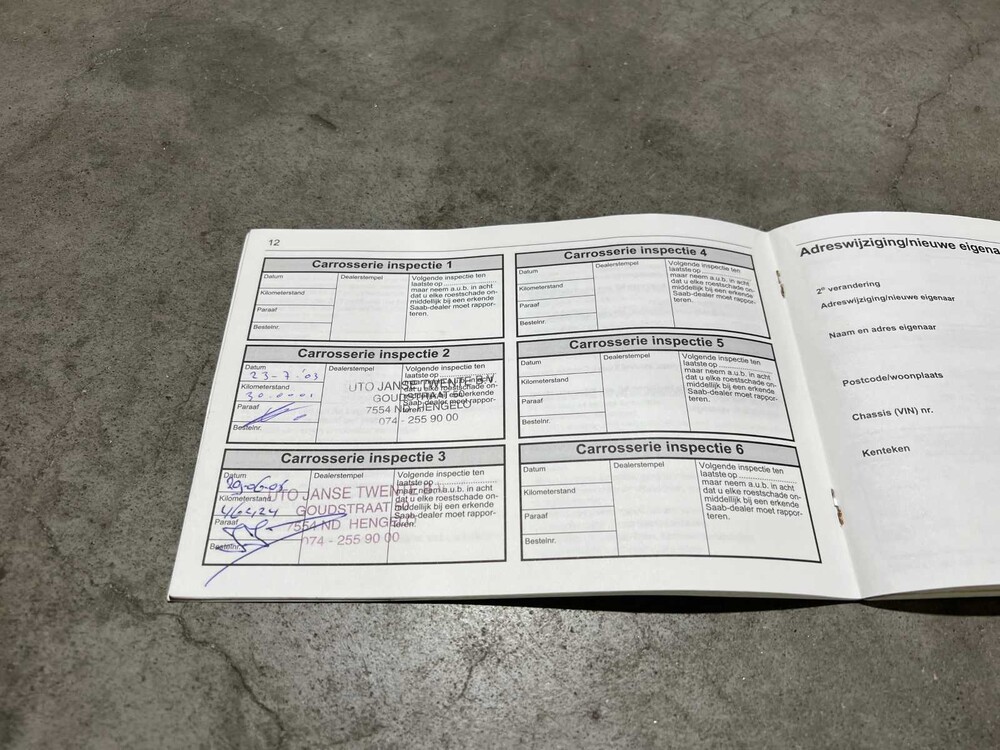 12
Carrosserie inspectie 1
Datum
Kilometerstand
Paraaf
Bestelnr.
Dealerstempel
Volgende inspectie ten
laatste op
maar neem a.u.b. in acht
dat u elke roestschade on-
middellijk bij een erkende
Saab-dealer moet rappor-
teren.
Carrosserie inspectie 2
Datum
23-7-'03
Kilometerstand
Paraaf
Bestelnr.
Dealerstempel
Volgende inspectie ten
laatste op
maar neem a.u.b. in acht
dat u elke roestschade on-
middellijk bij een erkende
Saab-dealer moet rappor-
teren.
UTO JANSE TWENTE B.V.
GOUDSTRAAT 50
7554 ND HENGELO
074 - 255 90 00
Carrosserie inspectie 3
Datum
Kilometerstand
Paraaf
Bestelnr.
Dealerstempel
Volgende inspectie ten
laatste op
maar neem a.u.b. in acht
dat u elke roestschade on-
middellijk bij een erkende
Saab-dealer moet rappor-
teren.
UTO JANSE TWENTE
GOUDSTRAAT
7554 ND HENGELO
074 - 255 90 00
Carrosserie inspectie 4
Datum
Kilometerstand
Paraaf
Bestelnr.
Dealerstempel
Volgende inspectie ten
laatste op
maar neem a.u.b. in acht
dat u elke roestschade on-
middellijk bij een erkende
Saab-dealer moet rappor-
teren.
Carrosserie inspectie 5
Datum
Kilometerstand
Paraaf
Bestelnr.
Dealerstempel
Volgende inspectie ten
laatste op
maar neem a.u.b. in acht
dat u elke roestschade on-
middellijk bij een erkende
Saab-dealer moet rappor-
teren.
Carrosserie inspectie 6
Datum
Kilometerstand
Paraaf
Bestelnr.
Dealerstempel
Volgende inspectie ten
laatste op
maar neem a.u.b. in acht
dat u elke roestschade on-
middellijk bij een erkende
Saab-dealer moet rappor-
teren.
Adreswijziging/nieuwe eigena
2e verandering
Adreswijziging/nieuwe eigenaar
Naam en adres eigenaar
Postcode/woonplaats
Chassis (VIN) nr.
Kenteken